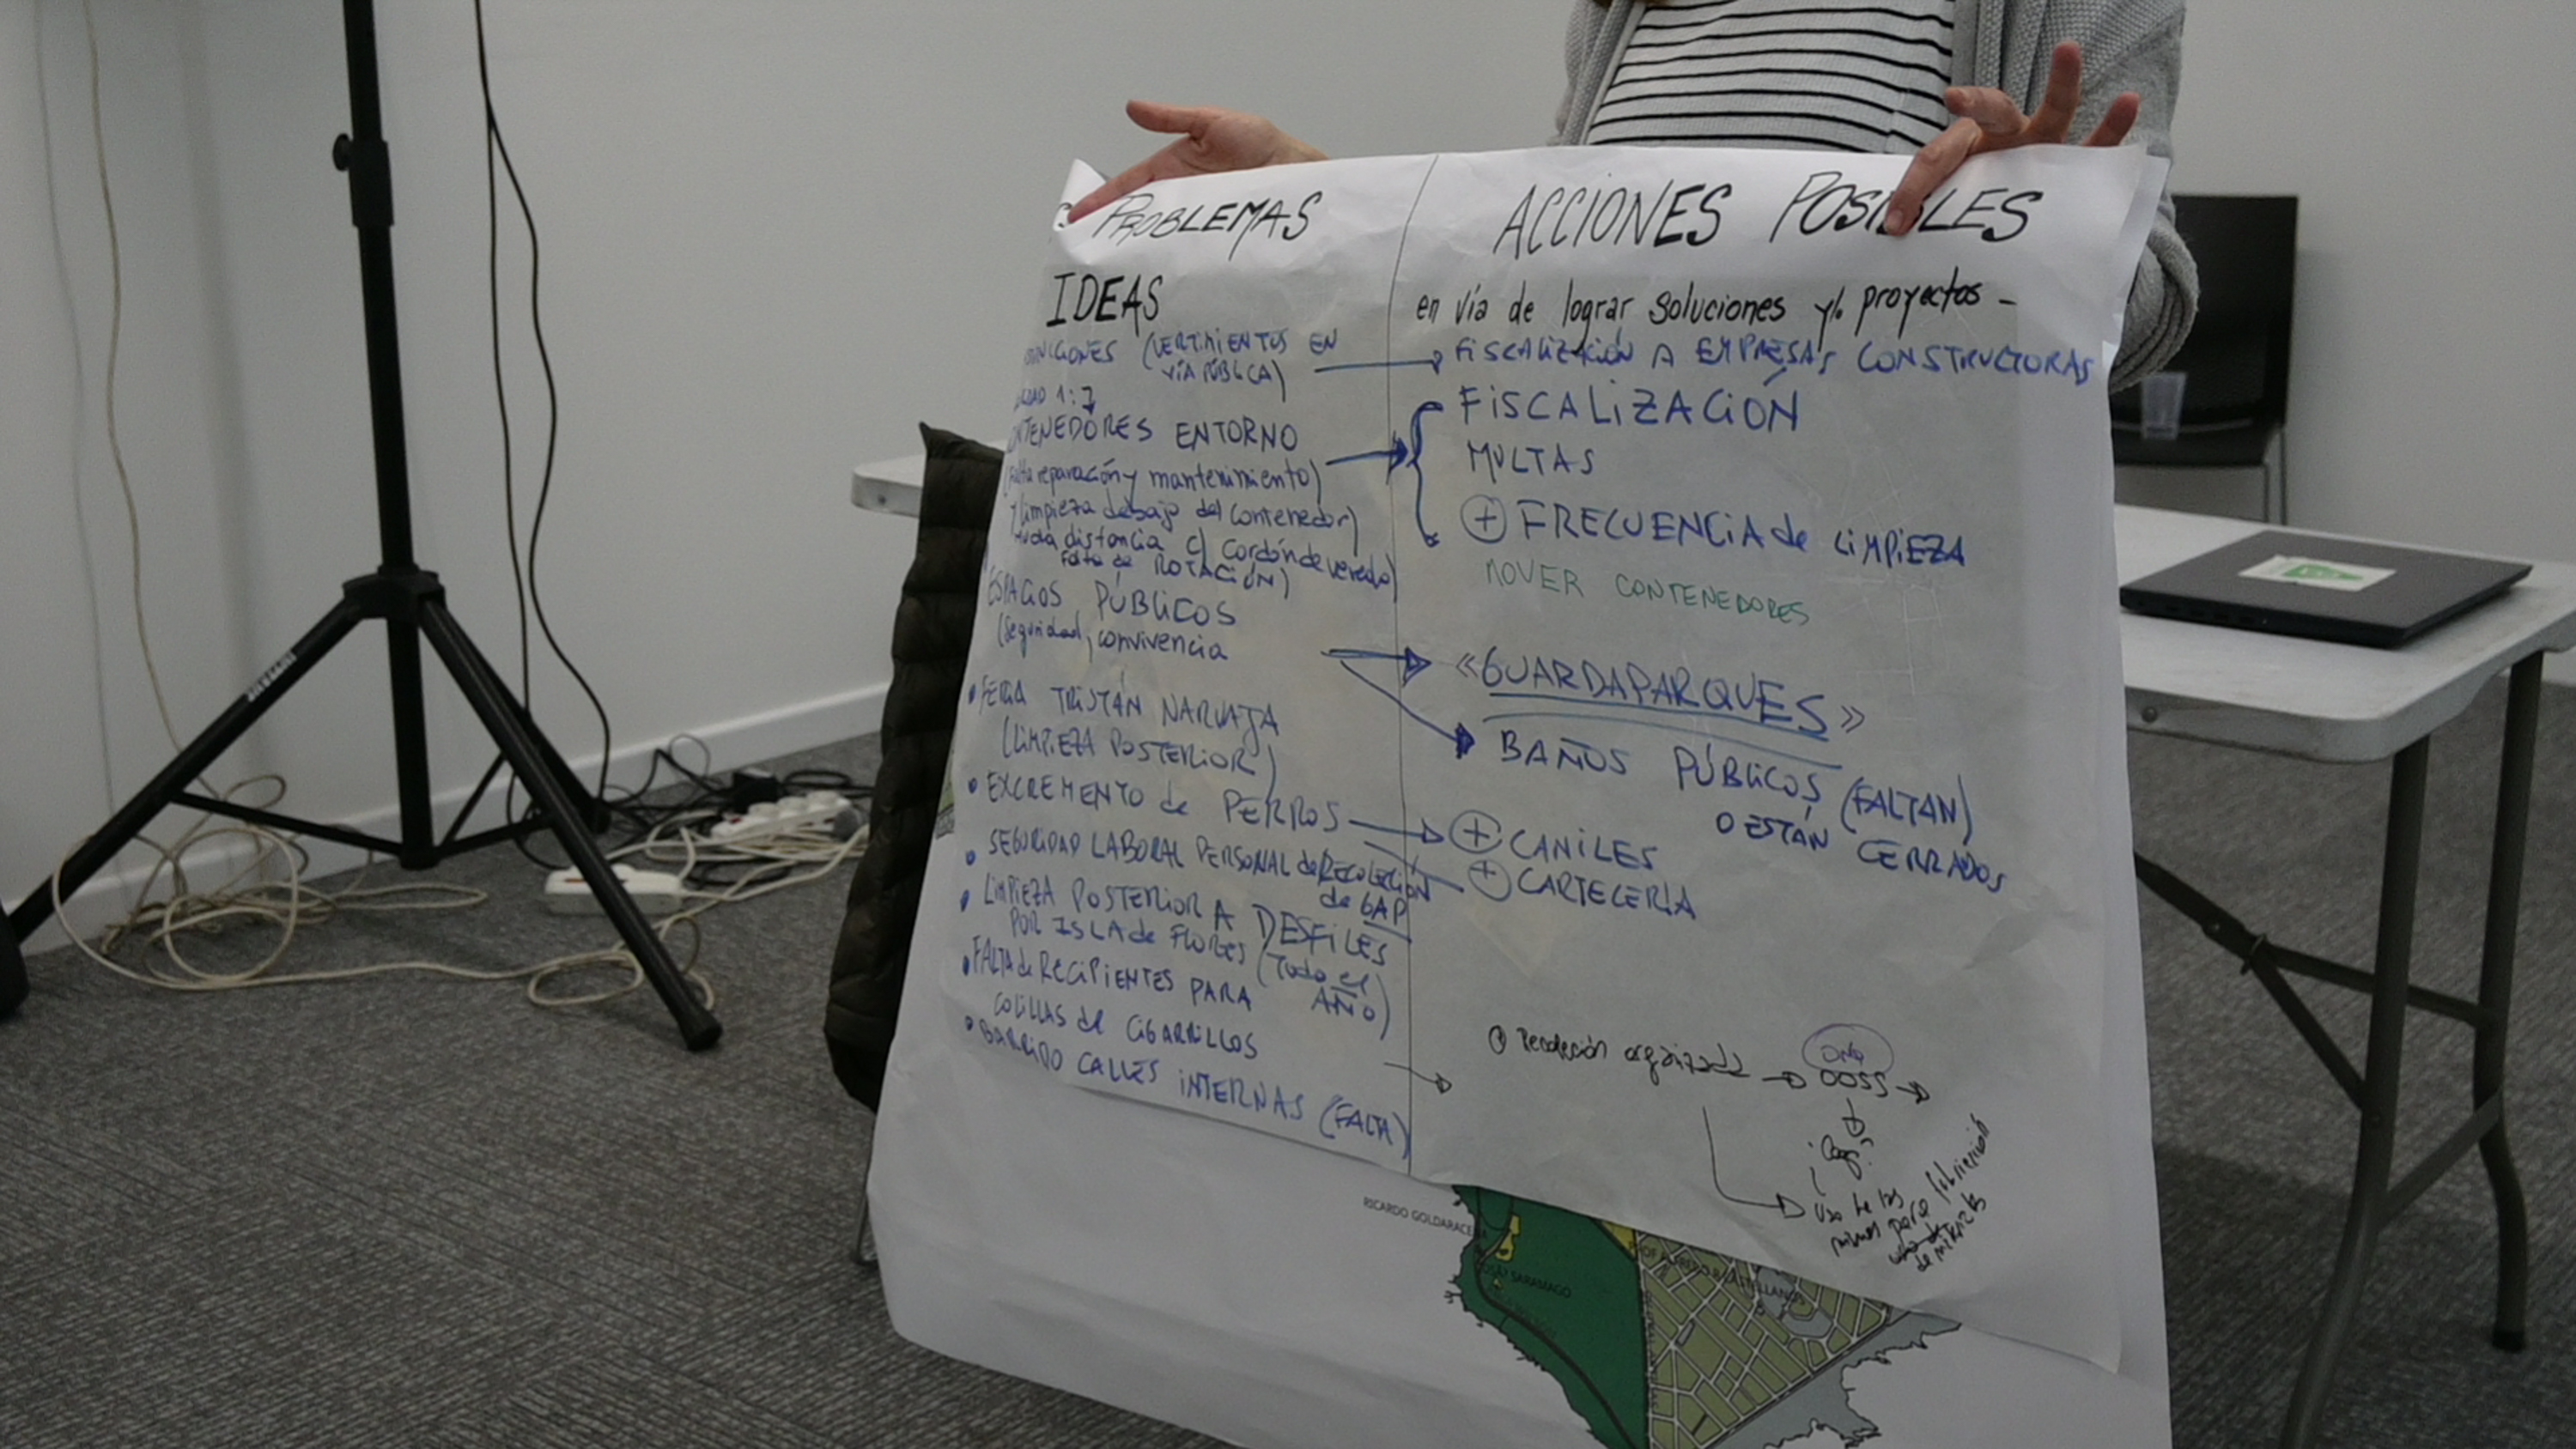 PROBLEMAS
IDEAS
(VERTIMIENTOS EN
VÍA PÚBLICA)
1:7
ENTORNO
reparación y mantenimiento)
limpieza debajo del contenedor)
distancia c/ Cordón de vereda)
falta de ROTACIÓN)
ESPACIOS PÚBLICOS
(Seguridad, convivencia
• FERIA TRISTÁN NARVAJA
(LIMPIEZA POSTERIOR)
• EXCREMENTO de PERROS
• SEGURIDAD LABORAL PERSONAL de RECOLECCIÓN
de GAP
• LIMPIEZA POSTERIOR A DESFILES
POR ISLA de FLORES (Todo el
AÑO)
• FALTA de RECIPIENTES PARA
COLILLAS de CIGARRILLOS
• BARRIDO CALLES INTERNAS (FALTA)
ACCIONES
en vía de lograr soluciones y/o proyectos -
FISCALIZACIÓN A EMPRESAS CONSTRUCTORAS
FISCALIZACIÓN
MULTAS
+ FRECUENCIA de LIMPIEZA
MOVER CONTENEDORES
«GUARDAPARQUES»
BAÑOS PÚBLICOS (FALTAN)
O ESTÁN CERRADOS
+ CANILES
+ CARTELERÍA
organizada
OOSS
uso de las
para
RICARDO GOLDARACE
SARAMAGO